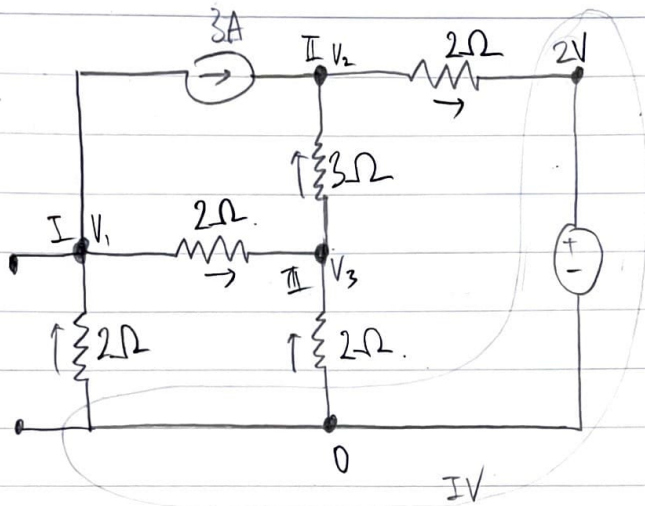 3A
II V₂
2Ω
2V
3Ω
I V₁
2Ω.
III V₃
+
-
2Ω
2Ω.
0
IV